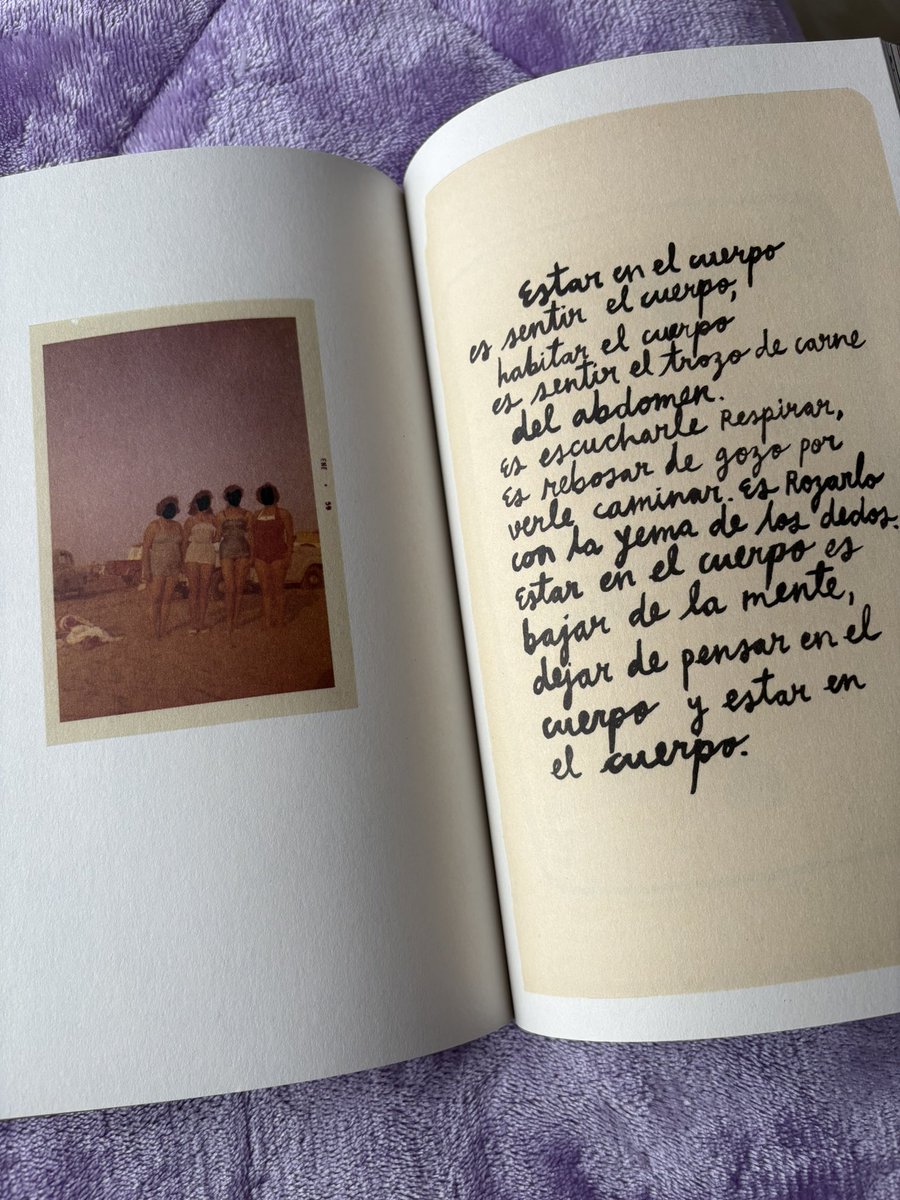 ENE • 59
Estar en el cuerpo
es sentir el cuerpo,
habitar el cuerpo
es sentir el trozo de carne
del abdomen.
es escucharle Respirar,
Es rebosar de gozo por
verle caminar. Es Rozarlo
con la yema de los dedos.
Estar en el cuerpo es
bajar de la mente,
dejar de pensar en el
cuerpo y estar en
el cuerpo.